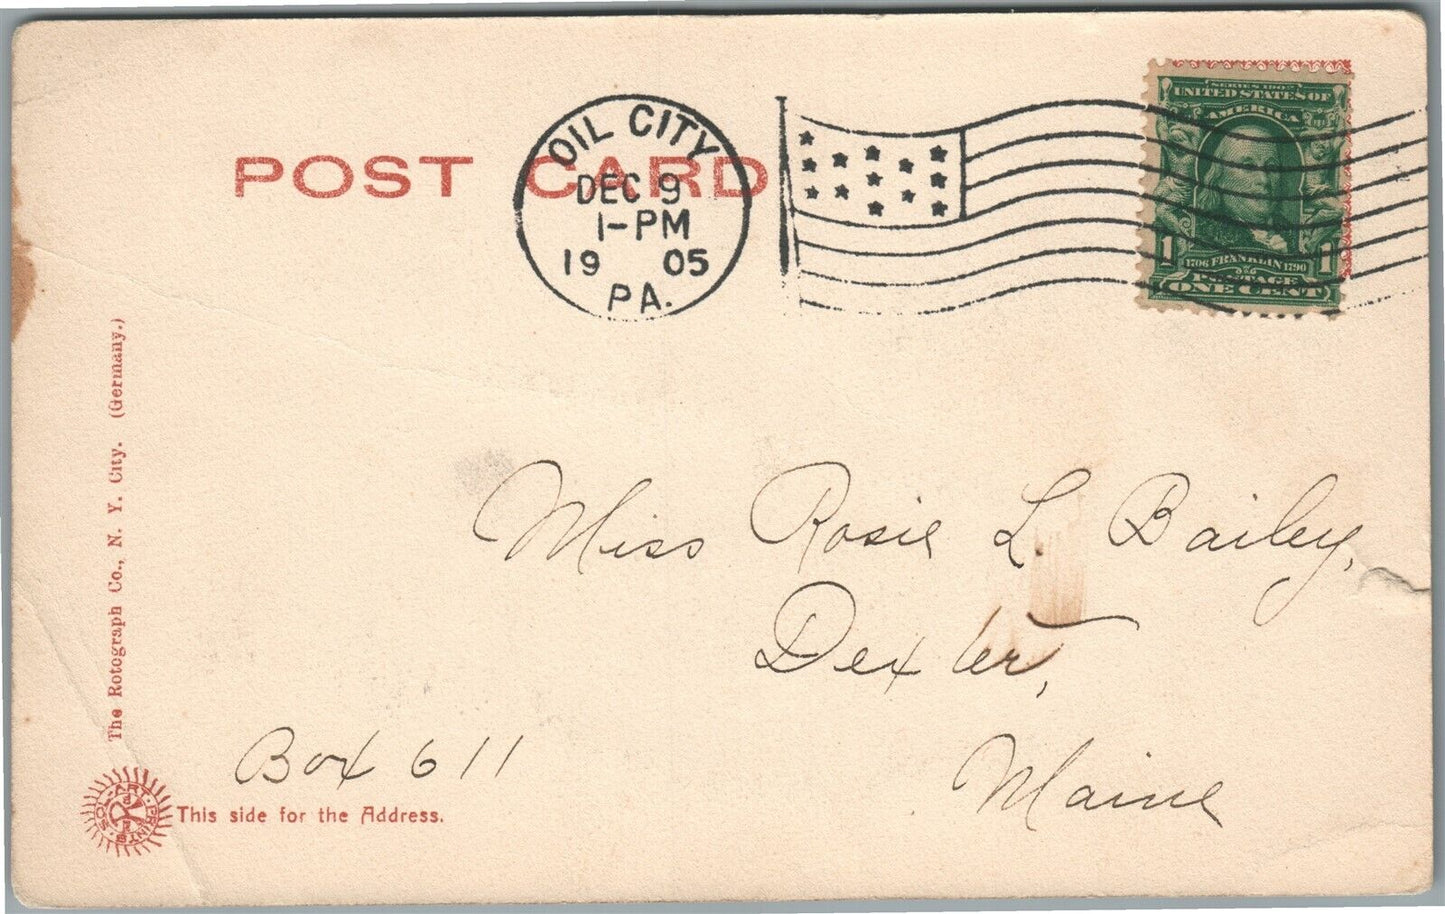 POST CARD
OIL CITY
DEC 9
1-PM
19 05
PA.
SERIES 1902
UNITED STATES OF
AMERICA
1 1
1706 FRANKLIN 1790
POSTAGE
ONE CENT
The Rotograph Co., N. Y. City. (Germany.)
Miss Rosie L. Bailey,
Dexter,
Maine
Box 611
SOL-ART PRINTS
This side for the Address.